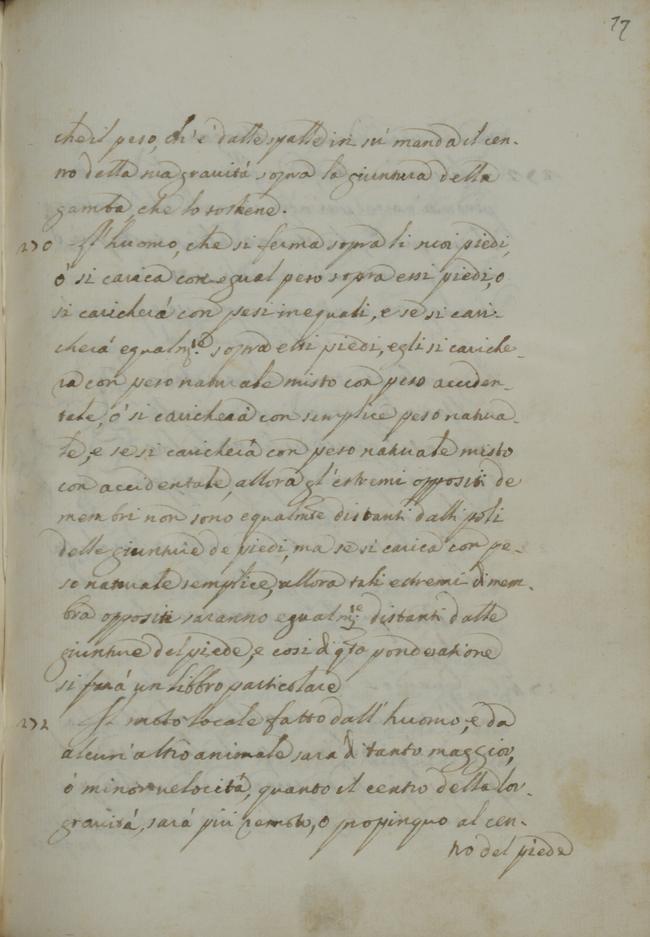 77
che il peso, ch'é dalle spalle in sú manda il cen-
tro della sua gravitá sopra la giuntura della
gamba, che lo sostiene.
270 L'huomo, che si ferma sopra li suoi piedi,
ó si carica con egual peso sopra essi piedi, o
si caricherá con pesi ineguali, e se si cari-
cherá egualm.te sopra essi piedi, egli si cariche-
ra con peso naturale misto con peso acciden-
tale, ó si caricherá con semplice peso natura-
le, e se si caricherá con peso náturale misto
con accidentale, allora gl'estremi oppositi de
membri non sono equalmte distanti dalli poli
delle giunture de piedi, ma se si carica con pe-
so naturale semplice, allora tali estremi di mem-
bra oppositi saranno egualm.te distanti dalle
giunture del piede, e cosi di qta ponderatione
si fará un libbro particolare
272 Il moto locale fatto dall'huomo, e da
alcun'altro animale sara di tanto maggior,
ó minor velocitá, quanto il centro della lor
gravitá, sará piú remoto, o propinquo al cen-
tro del piede